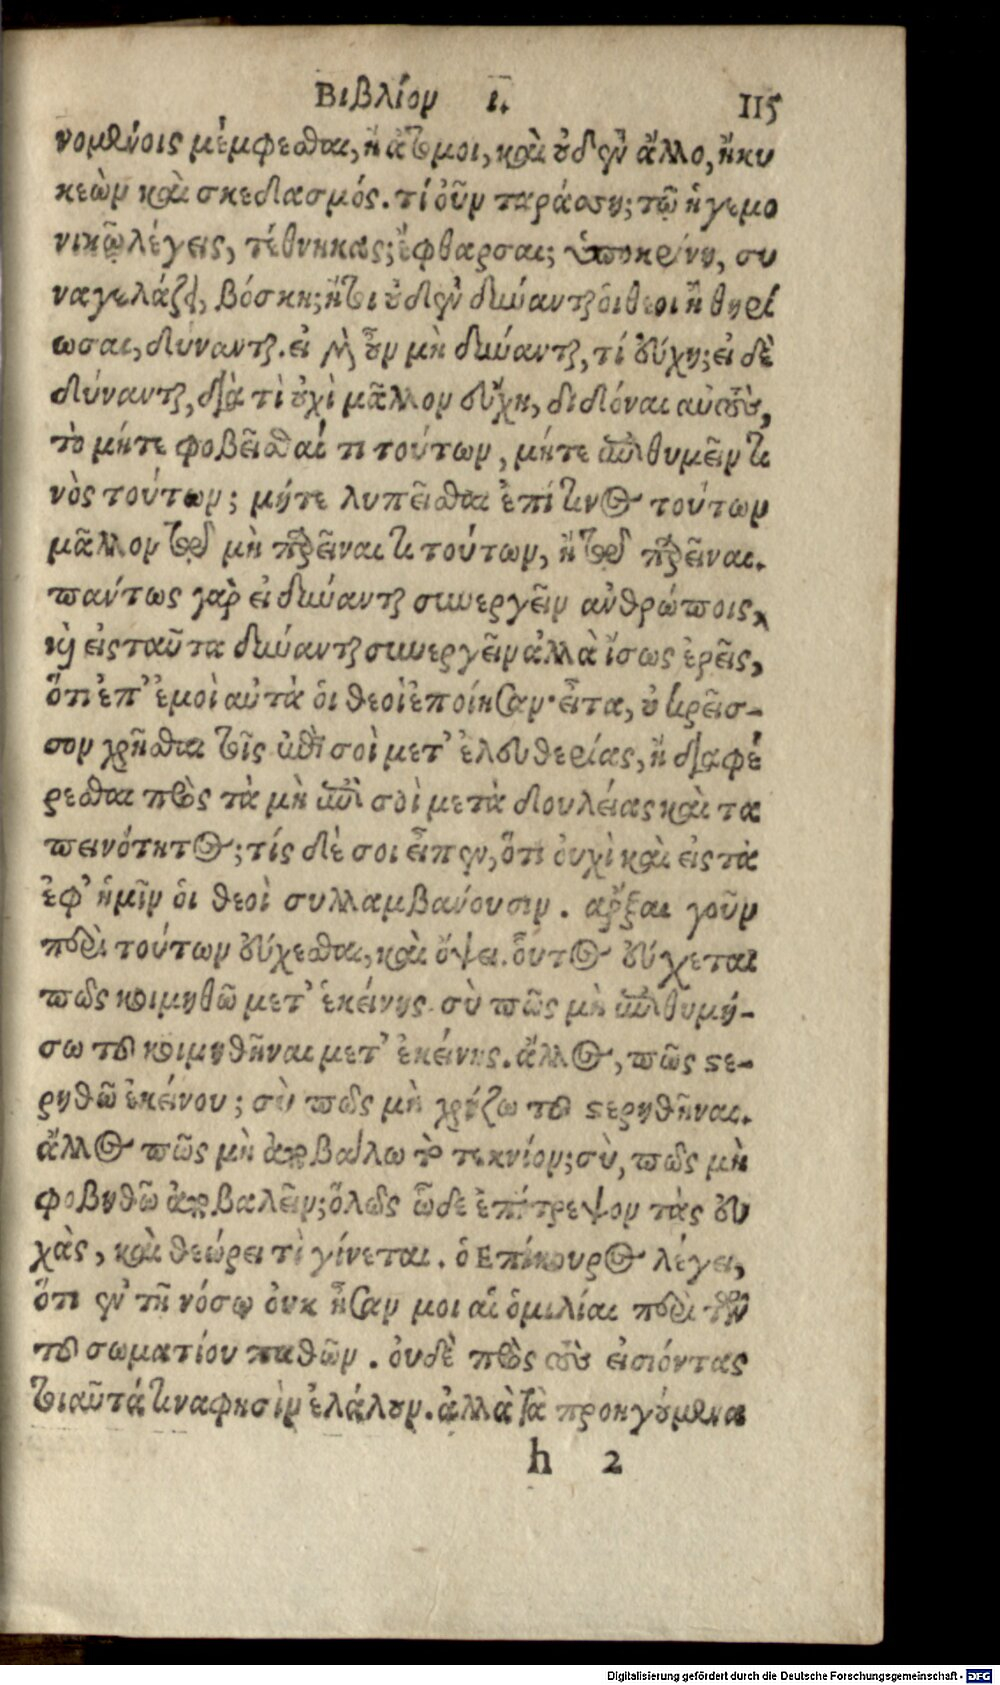 Βιβλίον ι. 115
νομένοις μέμφεσθαι, ἢ ἄτομοι, καὶ οὐδὲν ἄλλο, ἢ κυ
κεὼν καὶ σκεδασμός. τί οὖν ταράσσῃ; τῷ ἡγεμο
νικῷ λέγεις, τέθνηκας; ἔφθαρσαι; ὑποκρίνῃ, συ
ναγελάζῃ, βόσκῃ; ἤτοι οὐδὲν δύνανται οἱ θεοὶ ἢ θηρί
ωσαι, δύνανται. εἰ μὲν οὖν μὴ δύνανται, τί εὔχῃ; εἰ δὲ
δύνανται, διὰ τὶ οὐχὶ μᾶλλον εὔχῃ, διδόναι αὐτοὺς,
τὸ μήτε φοβεῖσθαί τι τούτων, μήτε ἐπιθυμεῖν τι
νὸς τούτων; μήτε λυπεῖσθαι ἐπί τινος τούτων
μᾶλλον τοῦ μὴ παρεῖναι τι τούτων, ἢ τοῦ παρεῖναι.
πάντως γὰρ εἰ δύνανται συνεργεῖν ἀνθρώποις,
καὶ εἰς ταῦτα δύνανται συνεργεῖν ἀλλὰ ἴσως ἐρεῖς,
ὅτι ἐπ' ἐμοὶ αὐτὰ οἱ θεοὶ ἐποίησαν. εἶτα, οὐ κρεῖσ-
σον χρῆσθαι τοῖς ἐπὶ σοὶ μετ' ἐλευθερίας, ἢ διαφέ
ρεσθαι πρὸς τὰ μὴ ἐπὶ σοὶ μετὰ δουλείας καὶ τα
πεινότητος; τίς δέ σοι εἶπεν, ὅτι οὐχὶ καὶ εἰς τὰ
ἐφ' ἡμῖν οἱ θεοὶ συλλαμβάνουσιν. ἄρξαι γοῦν
περὶ τούτων εὔχεσθαι, καὶ ὄψει. οὗτος εὔχεται
πῶς κοιμηθῶ μετ' ἐκείνης. σὺ πῶς μὴ ἐπιθυμή-
σω τοῦ κοιμηθῆναι μετ' ἐκείνης. ἄλλος, πῶς στε-
ρηθῶ ἐκείνου; σὺ πῶς μὴ χρῄζω τοῦ στερηθῆναι.
ἄλλος πῶς μὴ ἀποβάλω τὸ τεκνίον; σὺ, πῶς μὴ
φοβηθῶ ἀποβαλεῖν; ὅλως ὧδε ἐπίτρεψον τὰς εὐ
χὰς, καὶ θεώρει τὶ γίνεται. ὁ Επίκουρος λέγει,
ὅτι ἐν τῇ νόσῳ οὐκ ἦσαν μοι αἱ ὁμιλίαι περὶ τῶν
τοῦ σωματίου παθῶν. οὐδὲ πρὸς τοὺς εἰσιόντας
τοιαῦτά τινα φησὶν ἐλάλουν. ἀλλὰ τὰ προηγούμενα
h 2
Digitalisierung gefördert durch die Deutsche Forschungsgemeinschaft - DFG